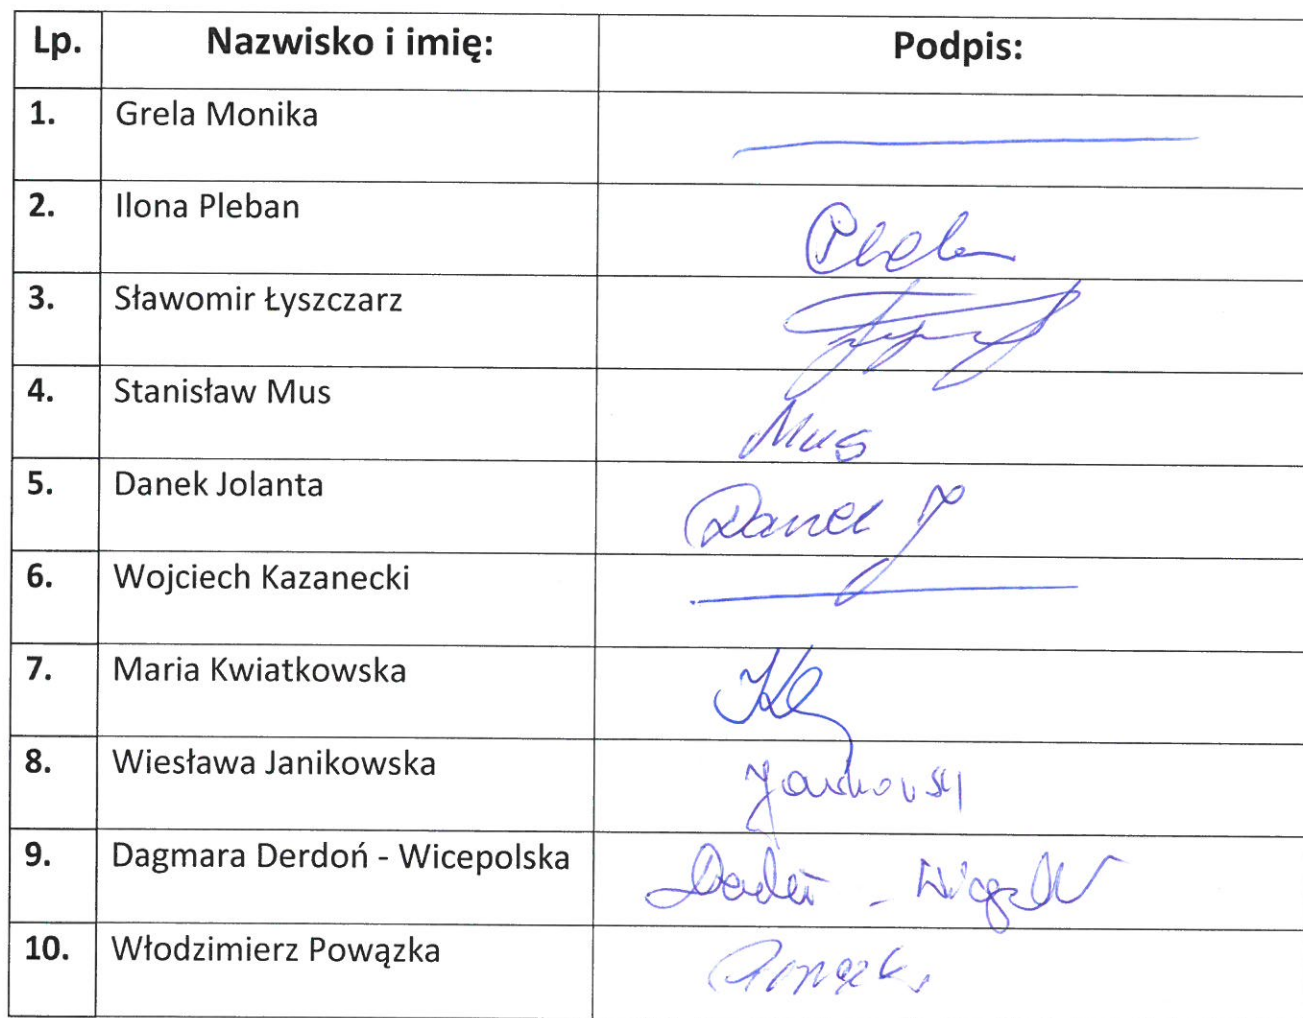 Lp. Nazwisko i imię: Podpis:
1. Grela Monika
2. Ilona Pleban
3. Sławomir Łyszczarz
4. Stanisław Mus Mus
5. Danek Jolanta Danek J
6. Wojciech Kazanecki
7. Maria Kwiatkowska
8. Wiesława Janikowska
9. Dagmara Derdoń - Wicepolska
10. Włodzimierz Powązka